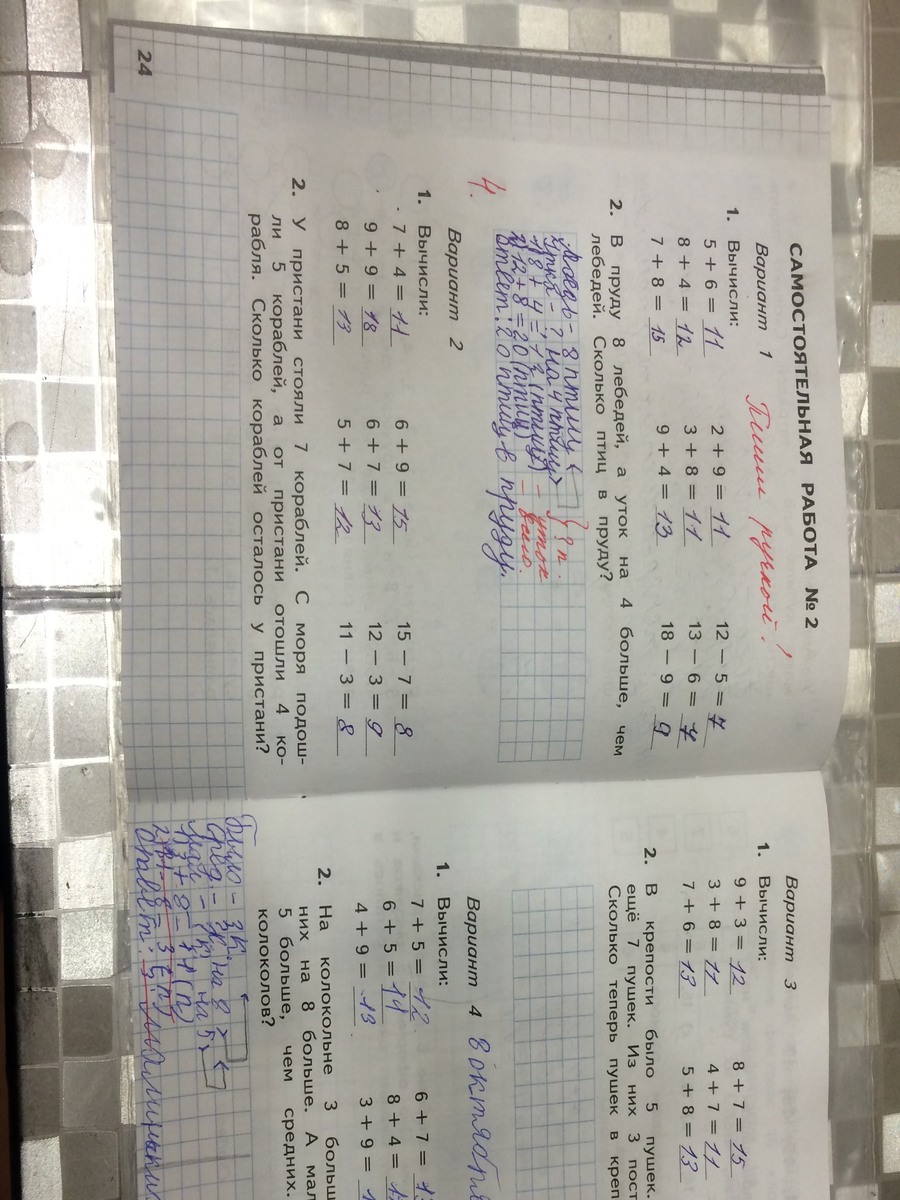 САМОСТОЯТЕЛЬНАЯ РАБОТА № 2
Вариант 1
Пиши ручкой!
1. Вычисли:
5 + 6 = 11 2 + 9 = 11 12 − 5 = 7
8 + 4 = 12 3 + 8 = 11 13 − 6 = 7
7 + 8 = 15 9 + 4 = 13 18 − 9 = 9
2. В пруду 8 лебедей, а уток на 4 больше, чем
лебедей. Сколько птиц в пруду?
− 8 птиц
− ? на 4 птицы > } ? п.
1) 8 + 4 = 12 (птиц) − уток
2) 12 + 8 = 20 (птиц) −
Ответ: 20 птиц в пруду.
4.
Вариант 2
1. Вычисли:
7 + 4 = 11 6 + 9 = 15 15 − 7 = 8
9 + 9 = 18 6 + 7 = 13 12 − 3 = 9
8 + 5 = 13 5 + 7 = 12 11 − 3 = 8
2. У пристани стояли 7 кораблей. С моря подош-
ли 5 кораблей, а от пристани отошли 4 ко-
рабля. Сколько кораблей осталось у пристани?
24
Вариант 3
1. Вычисли:
9 + 3 = 12 8 + 7 = 15
3 + 8 = 11 4 + 7 = 11
7 + 6 = 13 5 + 8 = 13
2. В крепости было 5 пушек.
ещё 7 пушек. Из них 3 пост
Сколько теперь пушек в креп
Вариант 4
8 октября
1. Вычисли:
7 + 5 = 12 6 + 7 =
6 + 5 = 11 8 + 4 =
4 + 9 = 13 3 + 9 =
2. На колокольне 3 больш
них на 8 больше. А мал
5 больше, чем средних.
колоколов?
− 3 к.
− ? к. на 8 >
− ? к. на 5 >
1) 3 + 8 = 11 (п)
= 3 (п)
Ответ: 3